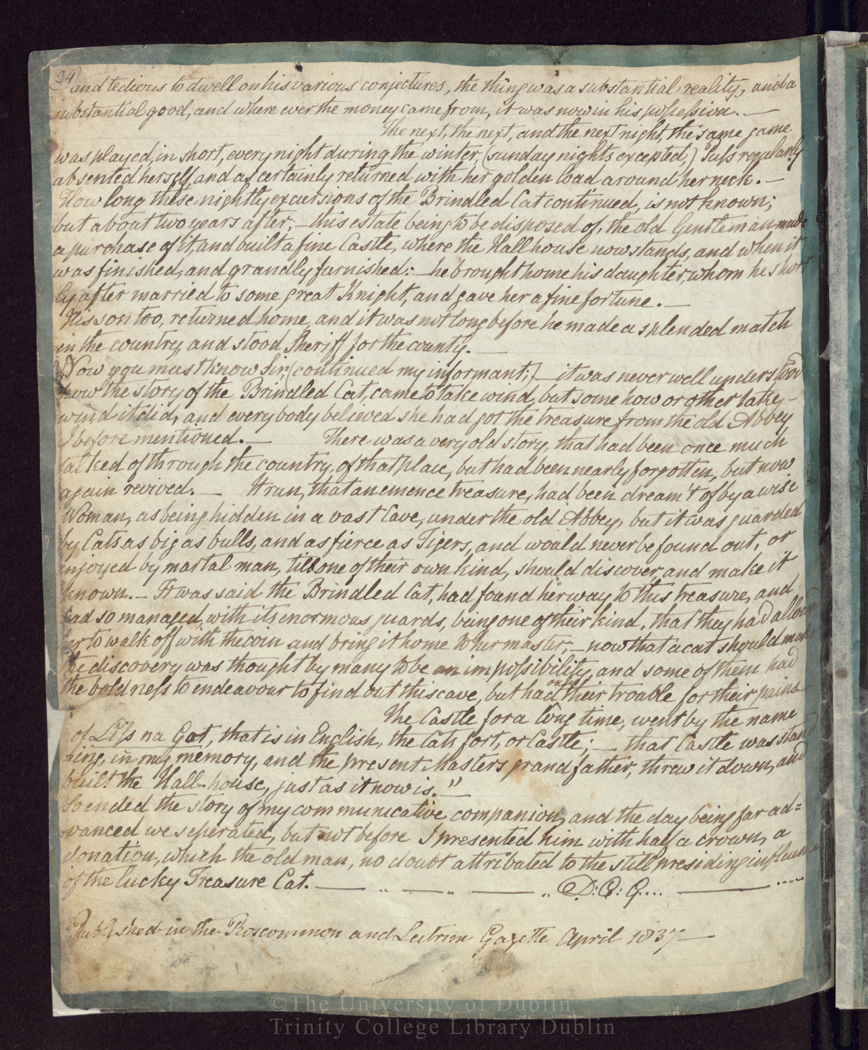 24) and tedious to dwell on his various conjectures, the thing was a substantial reality, and a
substantial good, and where ever the money came from, it was now in his possession. —
The next, the next, and the next night the same game
was played, in short, every night during the winter, (sunday nights excepted,) Puss regularly
absented herself, and as certainly returned with her golden load around her neck. —
How long these nightly excursions of the Brindled Cat continued, is not known;
but about two years after, — this estate being to be disposed of, the old Gentleman made
a purchase of it, and built a fine Castle, where the Hall house now stands, and when it
was finished, and grandly furnished: — he brought home his daughter, whom he short
ly after married to some great Knight, and gave her a fine fortune. —
His son too, returned home, and it was not long before he made a splended match
in the country, and stood Sheriff for the county. —
Now you must know Sir, (continued my informant;) — it was never well understood
how the story of the Brindled Cat, came to take wind, but some how or other take —
wind it did, and every body believed she had got the treasure from the old Abbey
I before mentioned. — There was a very old story, that had been once much
talked of through the country, of that place, but had been nearly forgotten, but now
again revived. — It run, that an emence treasure, had been dream't of by a wise
Woman, as being hidden in a vast Cave, under the old Abbey, but it was guarded
by Cats as big as bulls, and as fierce as Tigers, and would never be found out, or
injoyed by martal man, till one of their own kind, should discover, and make it
known. — It was said the Brindled Cat, had found her way to this treasure, and
had so managed, with its enormous guards, being one of their kind, that they had allow
her to walk off with the coin and bring it home to her master; — now that a cat should make
the discovery was thought by many to be an impossibility, and some of them had
the boldness to endeavour to find out this cave, but had only their trouble for their pains
The Castle for a long time, went by the name
of Liss na Gat, that is in English, the Cats fort, or Castle; — that Castle was stan
ding, in my memory, and the present Masters, grandfather, threw it down, and
built the Hall-house, just as it now is." —
So ended the story of my communicative companion, and the day being far ad=
vanced we seperated, but not before I presented him with half a crown, a
donation, which the old man, no doubt attributed to the still presiding influence
of the lucky Treasure Cat. — " — " — " D: C: G.... — ....
Published in the Roscommon and Leitrim Gazette April 1837 —
©The University of Dublin
Trinity College Library Dublin